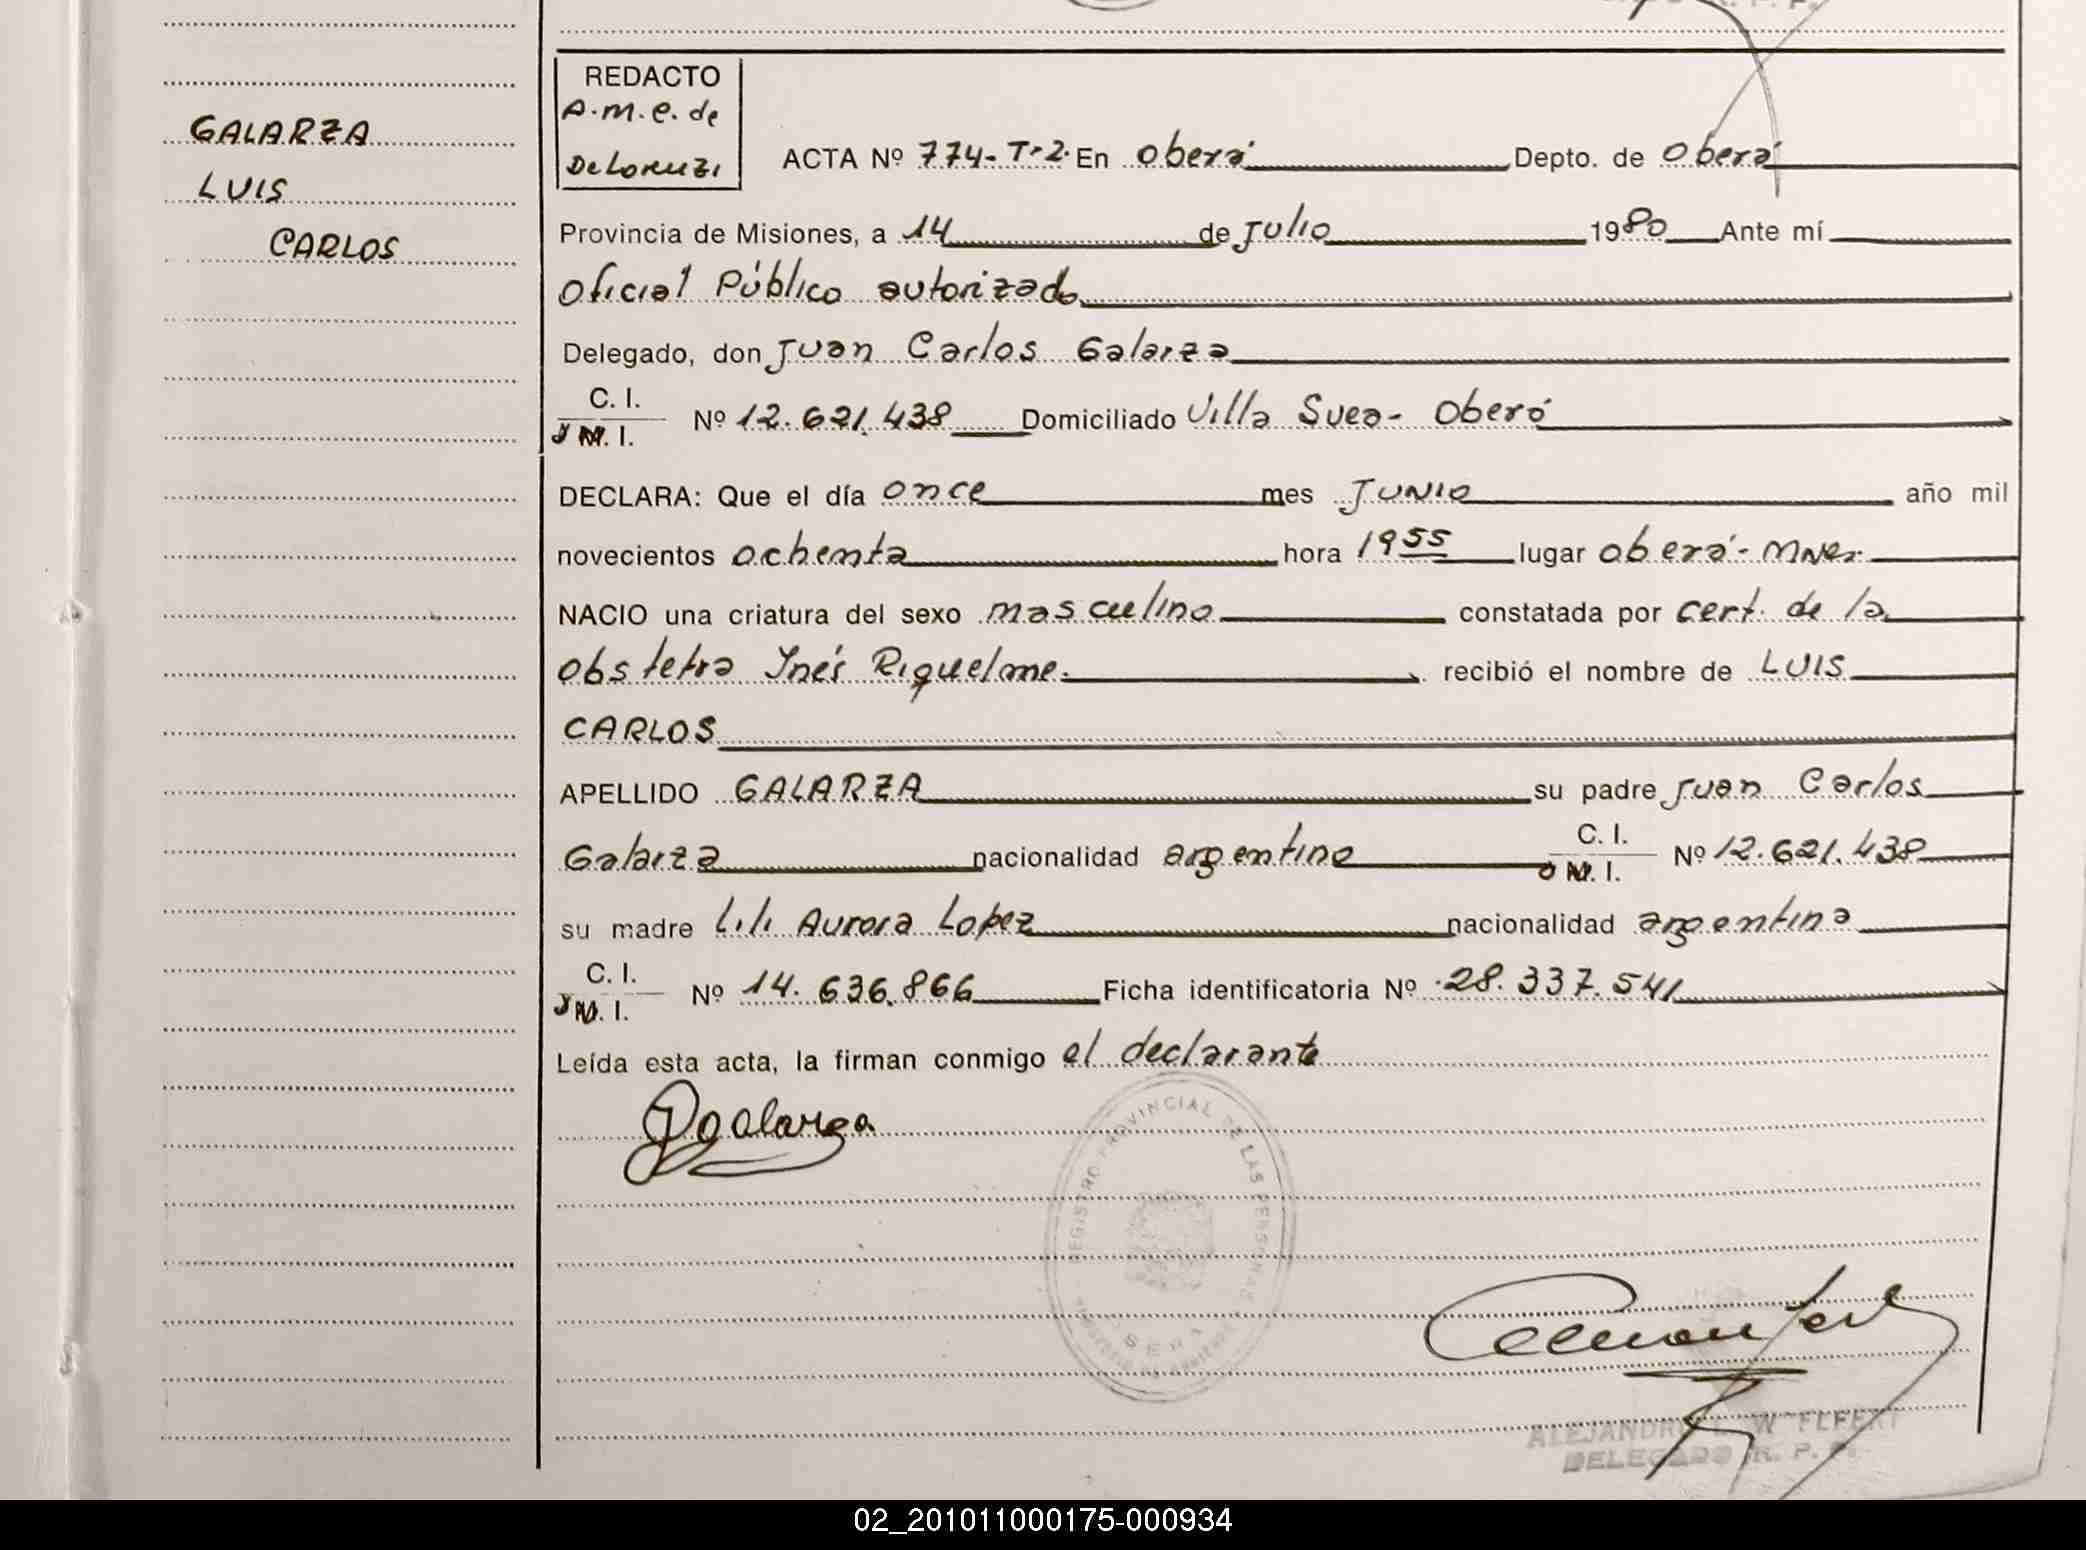 GALARZA
LUIS
CARLOS
REDACTO
A.m.e. de
DeLorenzi
ACTA Nº 774-T-2. En Oberá Depto. de Oberá
Provincia de Misiones, a 14 de Julio 1980 Ante mí
Oficial Público autorizado
Delegado, don Juan Carlos Galarza
C. I.
M. I. Nº 12.621.438 Domiciliado Villa Svea- Oberá
DECLARA: Que el día once mes JUNIO año mil
novecientos ochenta hora 1955 lugar Oberá- Mnes.
NACIO una criatura del sexo masculino constatada por cert. de la
Obstetra Inés Riquelme. recibió el nombre de LUIS
CARLOS
APELLIDO GALARZA su padre Juan Carlos
Galarza nacionalidad argentino C. I. M. I. Nº 12.621.438
su madre Lili Aurora Lopez nacionalidad argentina
C. I.
M. I. Nº 14.636.866 Ficha identificatoria Nº 28.337.541
Leída esta acta, la firman conmigo el declarante
JGalarza
REGISTRO PROVINCIAL DE LAS PERSONAS
ALEJANDRO
DELEGADO R. P. P.
02_201011000175-000934